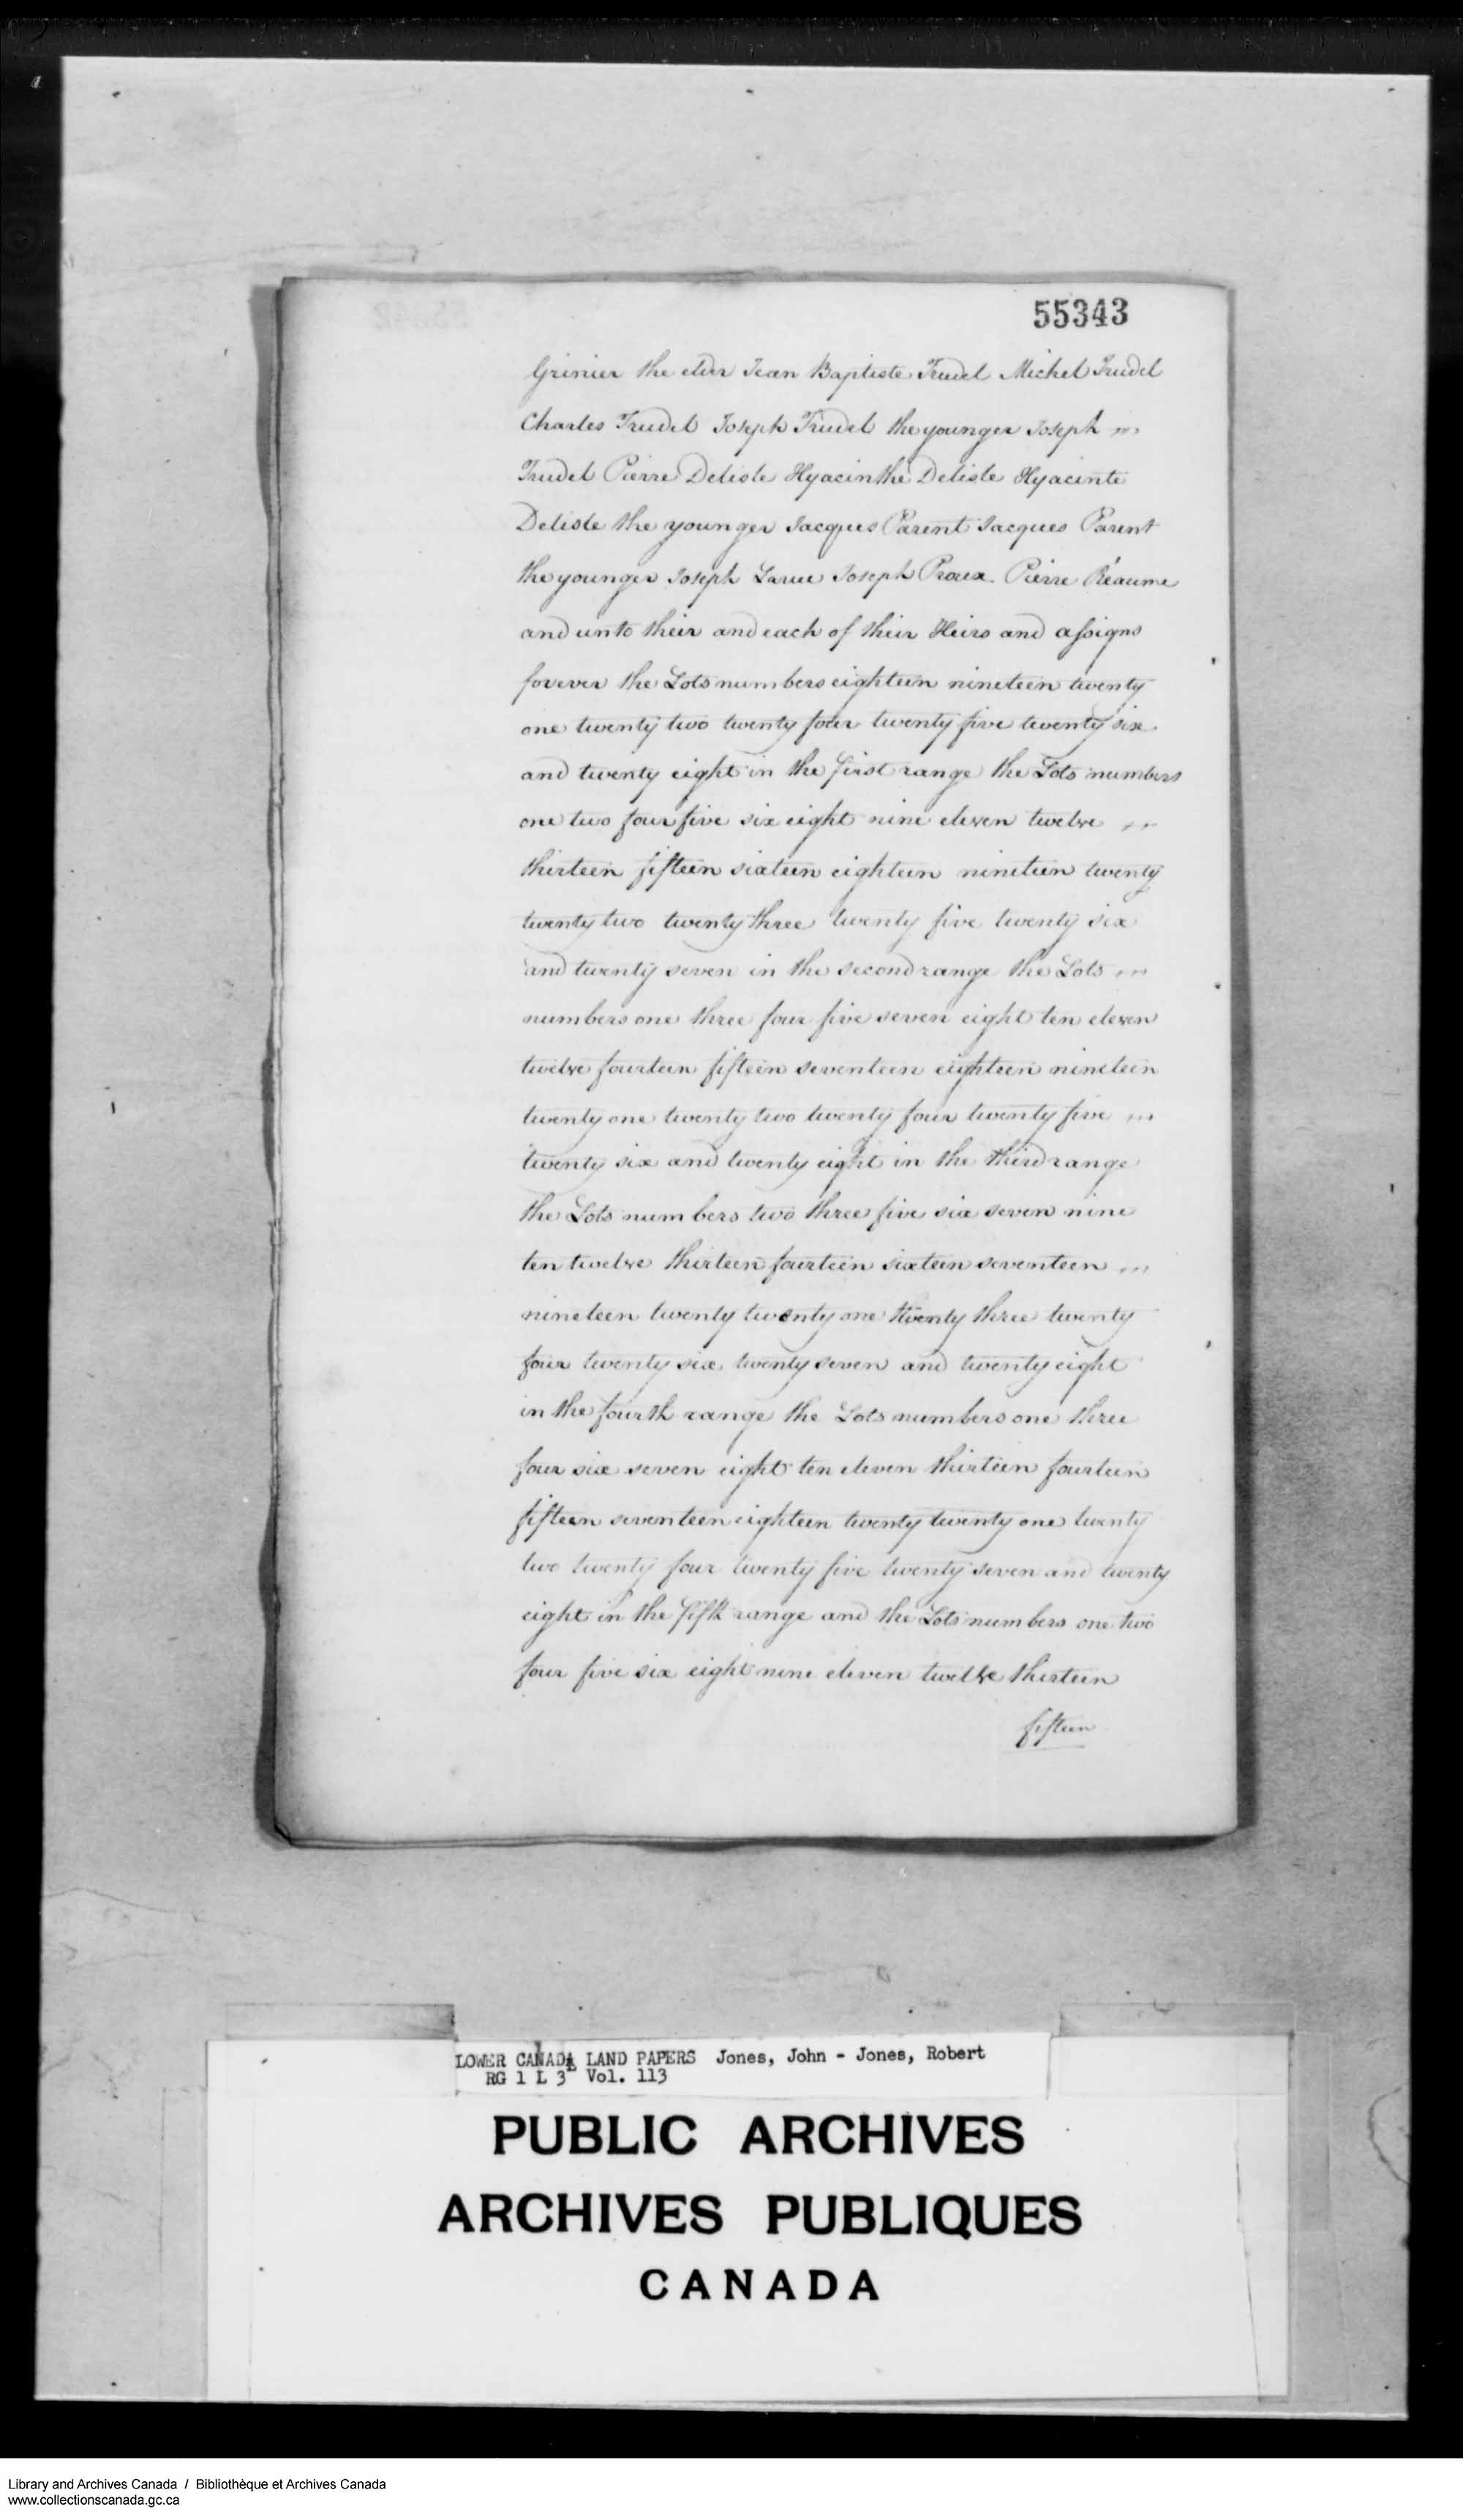 55343
Grinier the elder Jean Baptiste Trudel Michel Trudel
Charles Trudel Joseph Trudel the younger Joseph
Trudel Pierre Delisle Hyacinthe Delisle Hyacinte
Delisle the younger Jacques Parent Jacques Parent
the younger Joseph Larue Joseph Proux Pierre Réaume
and unto their and each of their Heirs and assigns
forever the Lots numbers eighteen nineteen twenty
one twenty two twenty four twenty five twenty six
and twenty eight in the first range the Lots numbers
one two four five six eight nine eleven twelve
thirteen fifteen sixteen eighteen nineteen twenty
twenty two twenty three twenty five twenty six
and twenty seven in the second range the Lots
numbers one three four five seven eight ten eleven
twelve fourteen fifteen seventeen eighteen nineteen
twenty one twenty two twenty four twenty five
twenty six and twenty eight in the third range
the Lots numbers two three five six seven nine
ten twelve thirteen fourteen sixteen seventeen
nineteen twenty twenty one twenty three twenty
four twenty six twenty seven and twenty eight
in the fourth range the Lots numbers one three
four six seven eight ten eleven thirteen fourteen
fifteen seventeen eighteen twenty twenty one twenty
two twenty four twenty five twenty seven and twenty
eight in the fifth range and the Lots numbers one two
four five six eight nine eleven twelve thirteen
fifteen
LOWER CANADA LAND PAPERS Jones, John - Jones, Robert
RG 1 L 3 Vol. 113
PUBLIC ARCHIVES
ARCHIVES PUBLIQUES
CANADA
Library and Archives Canada / Bibliothèque et Archives Canada
www.collectionscanada.gc.ca